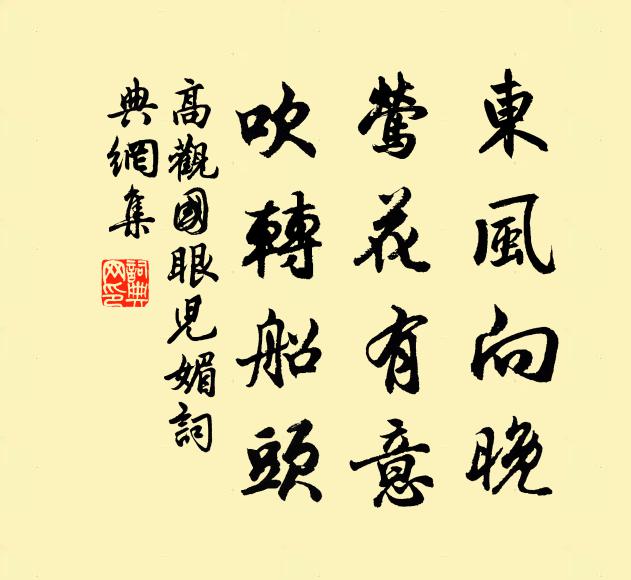 東風向晚
鶯花有意
吹轉船頭
高觀國眼兒媚詞
典網集
詞典
网印